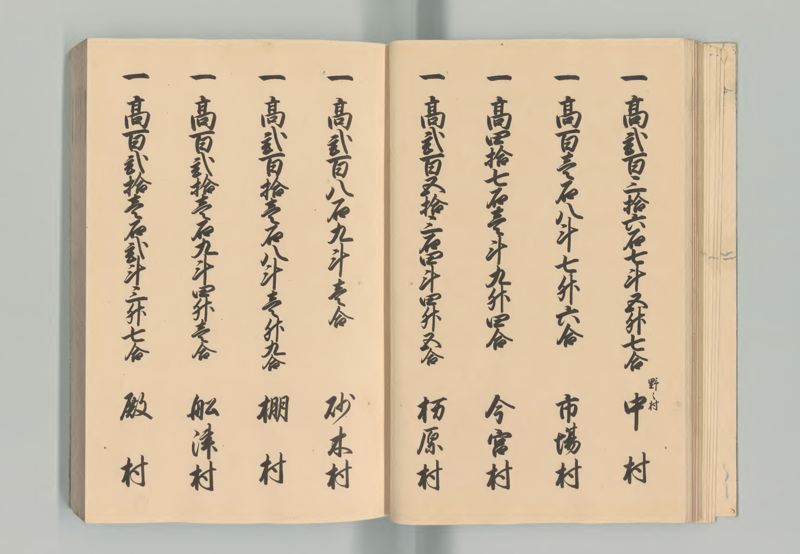 一 高弐百三拾六石七斗五升七合 野々村 中村
一 高百壱石八斗七升六合 市場村
一 高四拾七石壱斗九升四合 今宮村
一 高弐百五拾三石四斗四升五合 栃原村
一 高弐百八石九斗壱合 砂木村
一 高弐百拾壱石八斗壱升九合 棚村
一 高百弐拾壱石九斗四升壱合 船津村
一 高百弐拾壱石弐斗三升七合 殿村